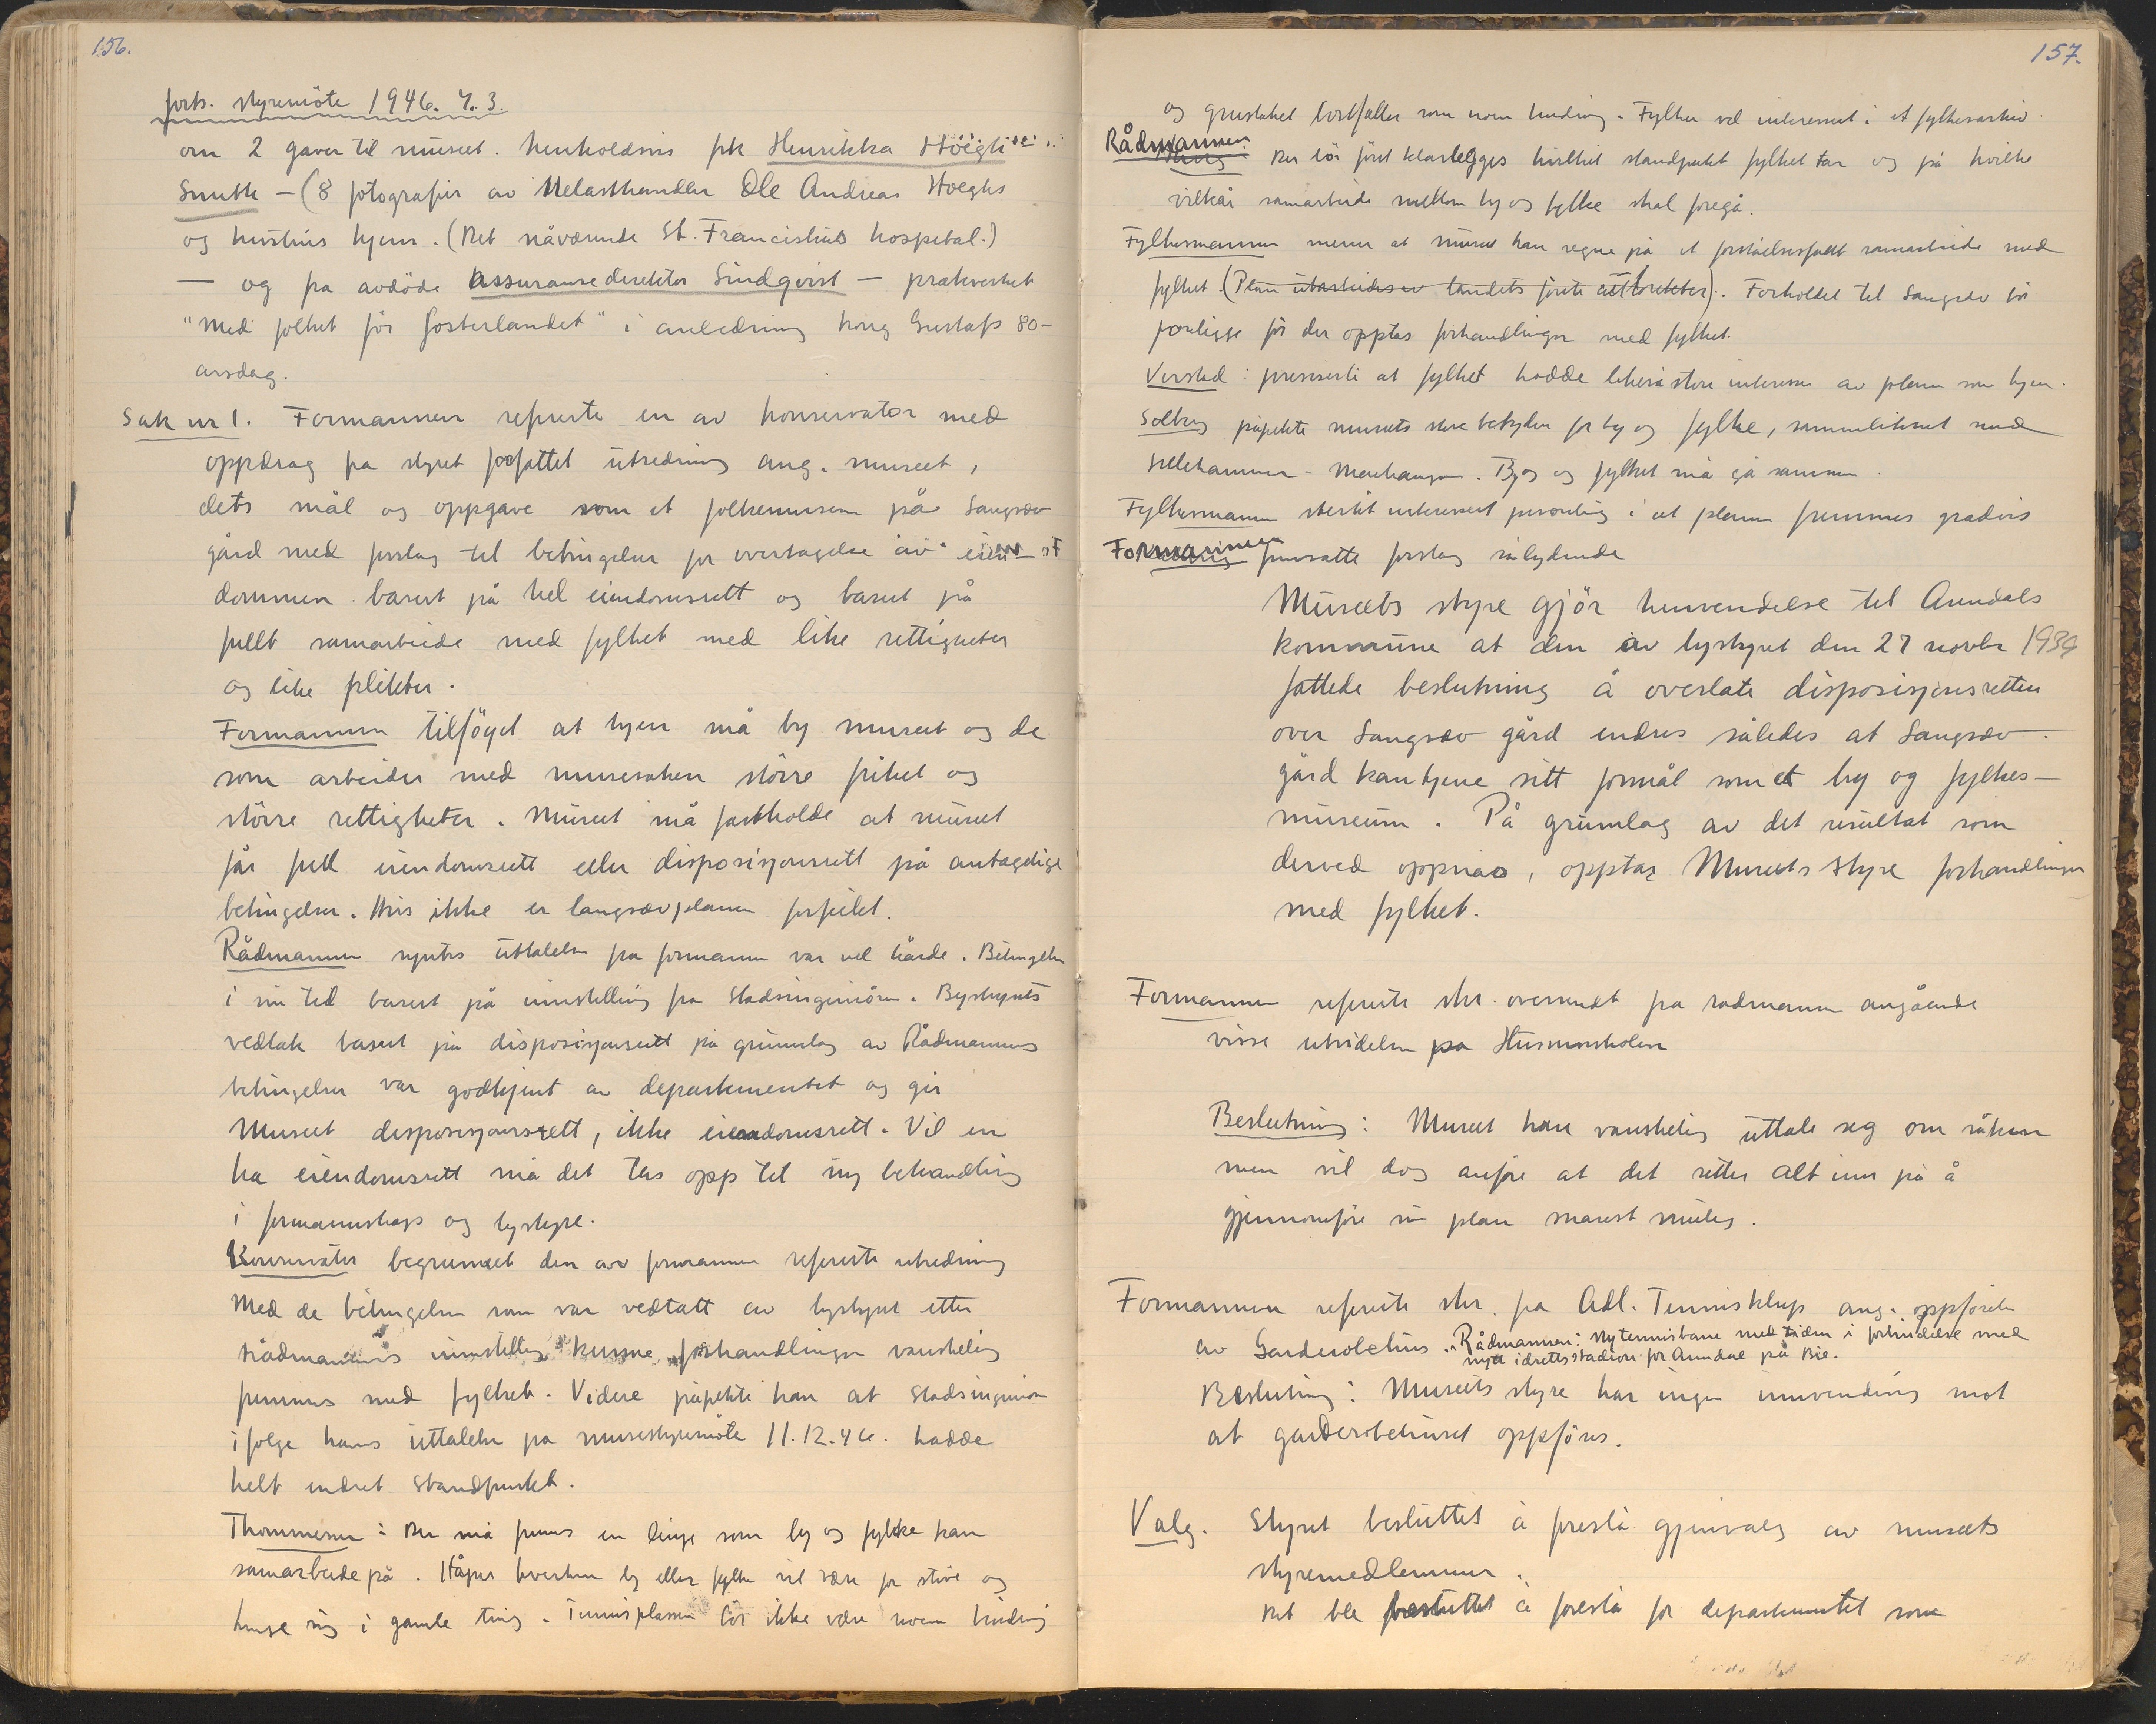 156.
forts. styremöte 1946. 7.3.
om 2 gaver til museet. henholdsvis frk Henrikka Höegh
Smith – (8 fotografier av Trelasthandler Ole Andreas Hoeghs
og hustrus hjem. (Det nåværende St. Franciskus hospital.)
— og fra avdöde Assuransedirektör Lindqvist — praktverket
"Med folket för fosterlandet" i anledning kong Gustafs 80-
årsdag.
Sak nr 1. Formannen refererte en av konservator med
oppdrag fra styret forfattet utredning ang. museet,
dets mål og oppgave som et folkemuseum på Langsæv
gård med forslag til betingelser for overtagelse av eien-
dommen basert på hel eiendomsrett og basert på
fullt samarbeide med fylket med like rettigheter
og like plikter.
Formannen tilföyet at byen må by museet og de
som arbeider med museisaken större frihet og
större rettigheter. Museet må fastholde at museet
får full eiendomsrett eller disposisjonsrett på antagelige
betingelser. Hvis ikke er langsævplanen forfeilet.
Rådmannen syntes uttalelsen fra formannen var vel hårde. Betingelsene
i sin tid basert på innstilling fra Stadsingeniören. Bystyrets
vedtak basert på disposisjonsrett på grunnlag av Rådmannens
betingelser var godkjent av departementet og gir
Museet disposisjonsrett, ikke eiendomsrett. Vil en
ha eiendomsrett må det tas opp til ny behandling
i formannskap og bystyre.
Konservator begrunnet den av formannen refererte utredning
Med de betingelser som var vedtatt av bystyret etter
rådmannens innstilling kunne forhandlinger vanskelig
fremmes med fylket. Videre påpekte han at Stadsingeniören
ifölge hans uttalelse på museistyremöte 11.12.46. hadde
helt endret standpunkt.
Thommesen: Der må finnes en linje som by og fylke kan
samarbeide på. Håper hverken by eller fylke vil være for stive og
henge sig i gamle ting. Tennisplassen bör ikke være noen hindring
157.
og grustaket bortfaller som noen hindring. Fylket vel interessert i et fylkesarkiv.
Rådmannen Der bör först klarlegges hvilket standpunkt fylket tar og på hvilke
vilkår samarbeide mellom by og fylke skal foregå.
Fylkesmannen mener at museet kan regne på et forståelsesfullt samarbeide med
fylket. (Plan utarbeides av landets förste arkitekter). Forholdet til Langsæv bör
foreligge för der opptas forhandlinger med fylket.
Verstad: presiserte at fylket hadde likeså store interesser av planen som byen.
Solberg påpekte museets store betydning for by og fylke, sammenliknet med
Lillehammer - Maihaugen. By og fylket må gå sammen.
Fylkesmannen sterkt interessert personlig i at planen fremmes gradvis
Formannen fremsatte forslag sålydende
Museets styre gjör henvendelse til Arendals
kommune at den av bystyret den 27 novbr 1939
fattede beslutning å overlate disposisjonsretten
over Langsæv gård endres således at Langsæv
gård kan tjene sitt formål som et by og fylkes-
museum. På grunnlag av det resultat som
derved oppnåes, opptar Museets styre forhandlinger
med fylket.
Formannen refererte skr. oversendt fra rådmannen angående
visse utvidelser på Husmorskolen
Beslutning: Museet kan vanskelig uttale seg om saken
men vil dog anföre at det setter alt inn på å
gjennomföre sin plan snarest mulig.
Formannen refererte skr. fra Adl. Tennisklubb ang. oppförelse
av Garderobehus. Rådmannen: Ny tennisbane med tiden i forbindelse med
nytt idrettsstadion for Arendal på Bie.
Beslutning: Museets styre har ingen innvending mot
at garderobehuset oppföres.
Valg. Styret besluttet å foreslå gjenvalg av museets
styremedlemmer.
Det ble besluttet å foreslå for departementet som